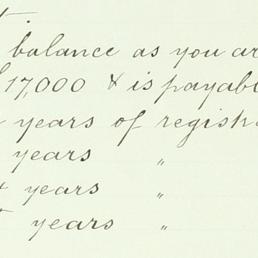 balance as you are
17,000 & is payable
years of regist
years "
years "
years "